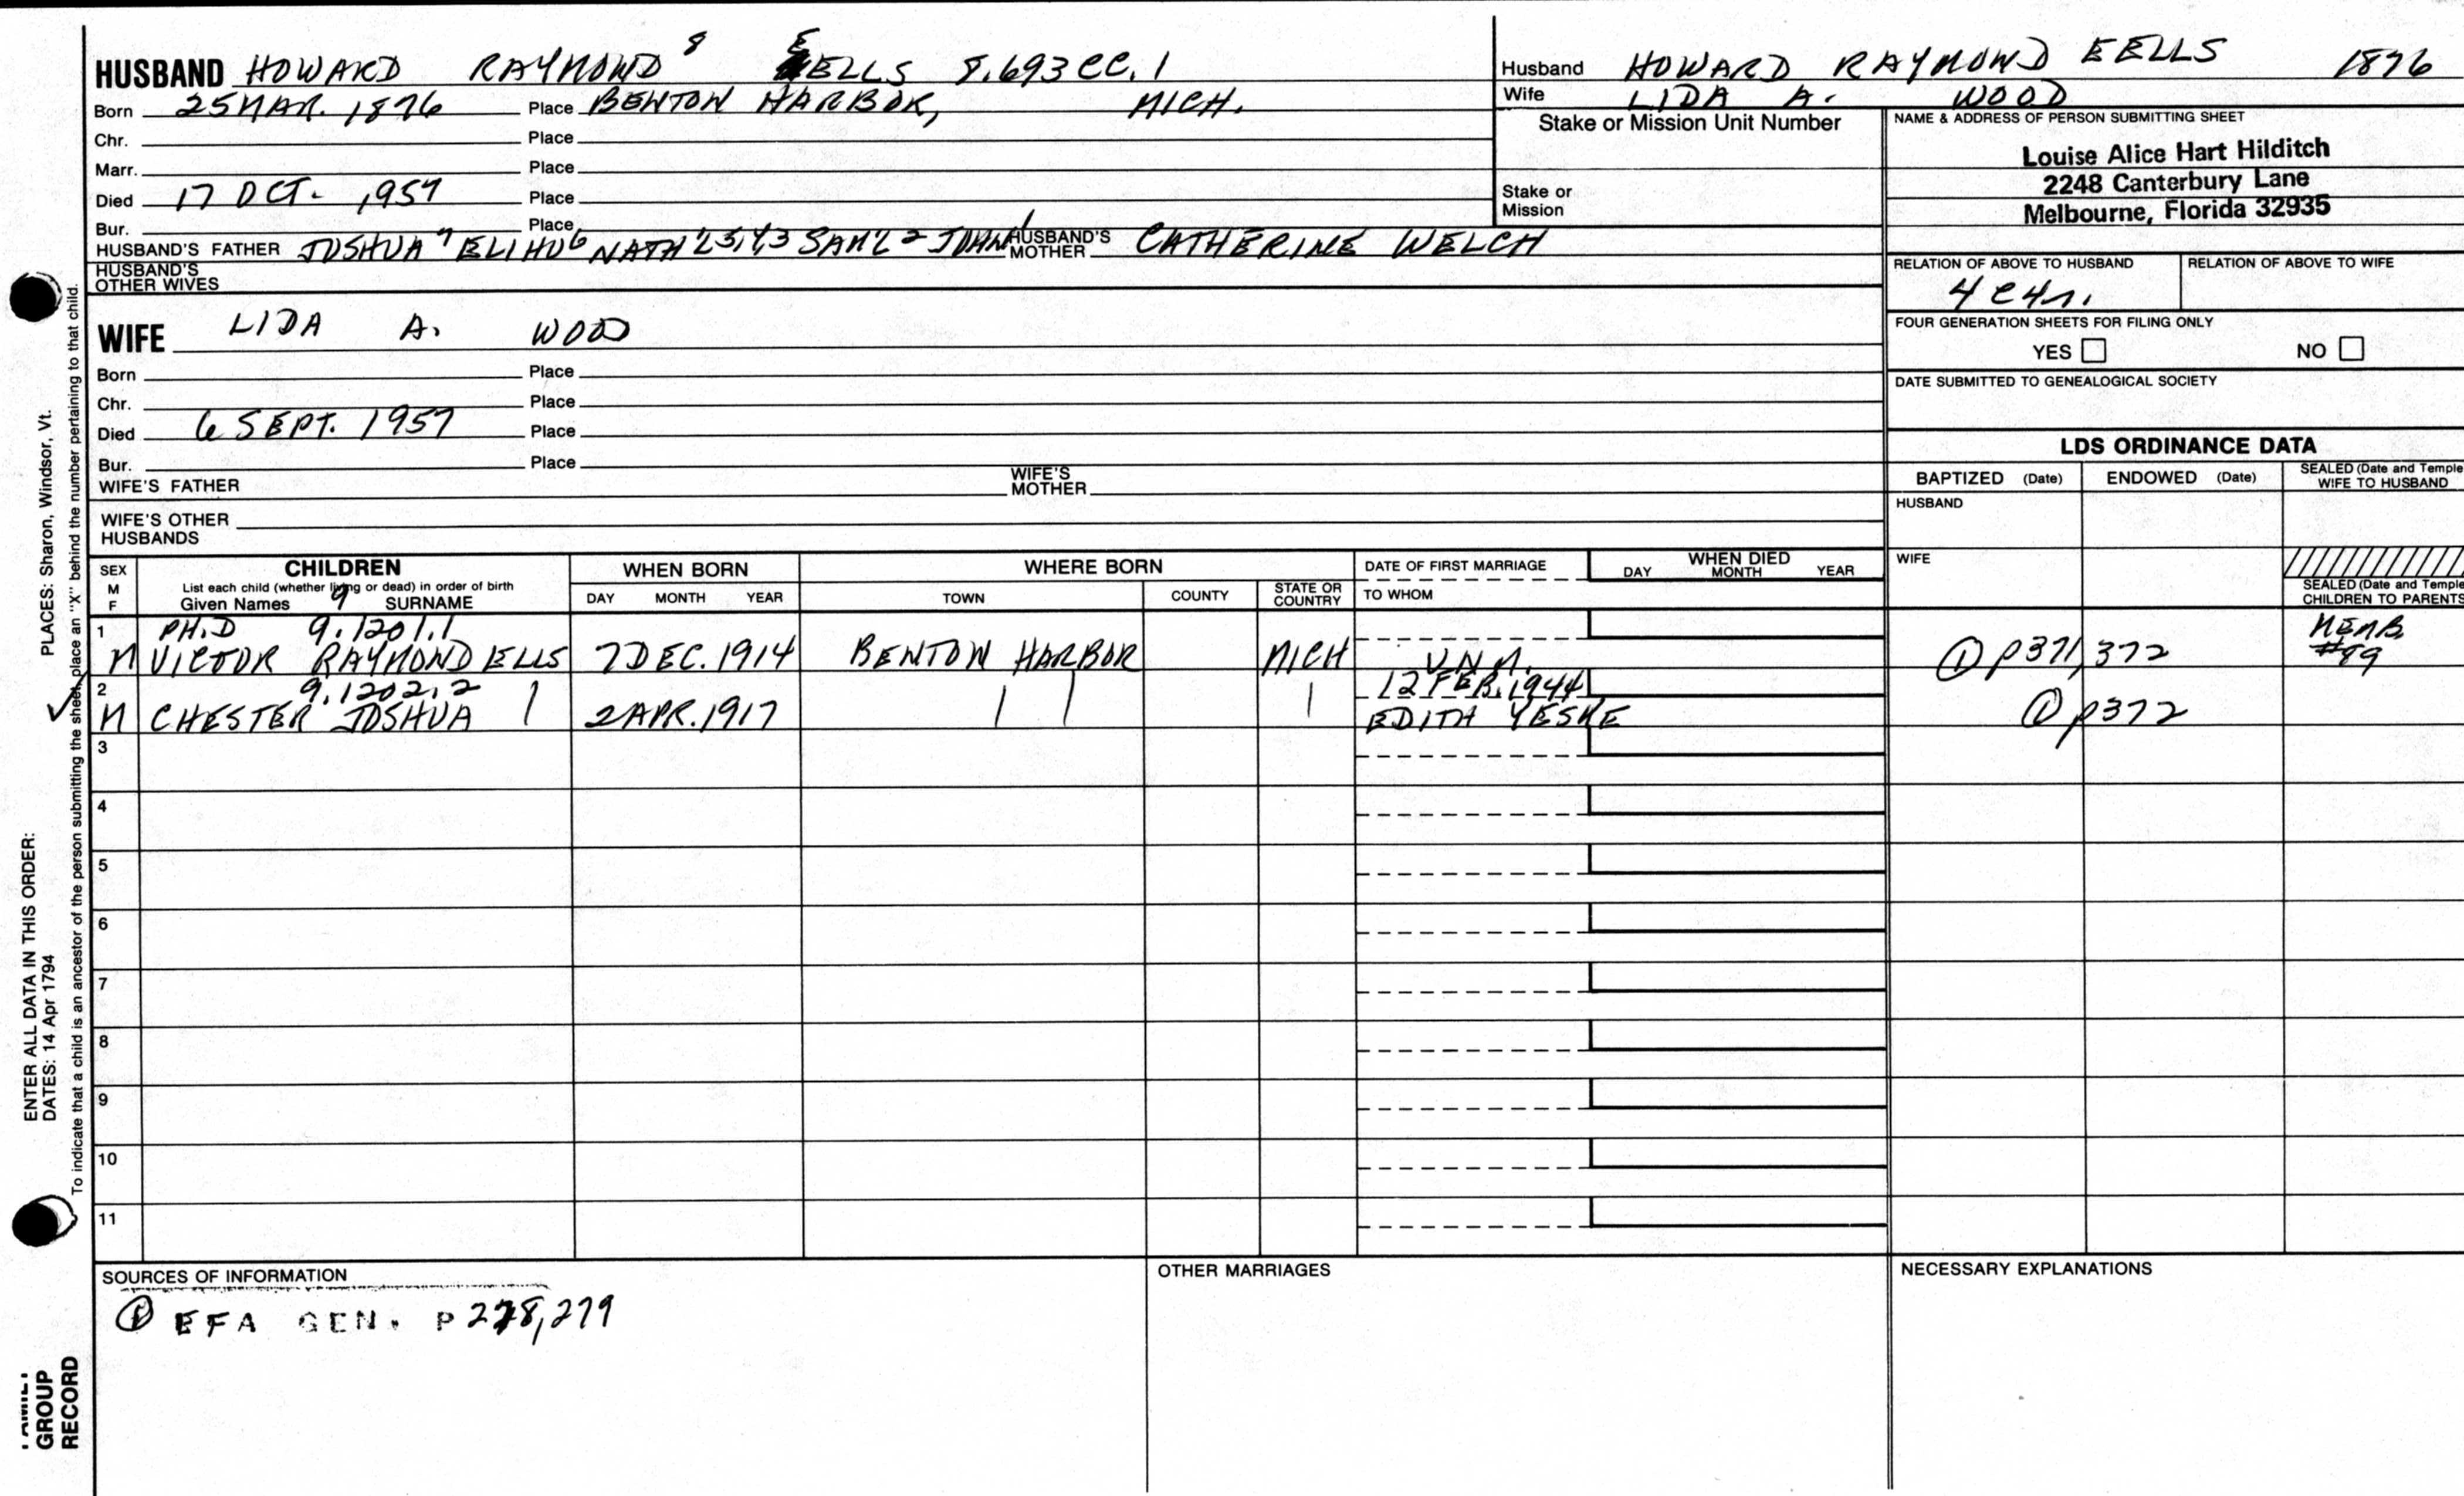 HUSBAND HOWARD RAYMOND 8 EELLS 8.693CC.1
Born 25 MAR. 1876 Place BENTON HARBOR, MICH.
Chr. Place
Marr. Place
Died 17 OCT. 1957 Place
Bur. Place
HUSBAND'S FATHER JOSHUA 7 ELIHU 6 NATH'L 5,4,3 SAM'L 2 JOHN 1 HUSBAND'S MOTHER CATHERINE WELCH
HUSBAND'S OTHER WIVES
Husband HOWARD RAYMOND EELLS 1876
Wife LIDA A. WOOD
Stake or Mission Unit Number
Stake or Mission
NAME & ADDRESS OF PERSON SUBMITTING SHEET
Louise Alice Hart Hilditch
2248 Canterbury Lane
Melbourne, Florida 32935
RELATION OF ABOVE TO HUSBAND RELATION OF ABOVE TO WIFE
4C4r.
FOUR GENERATION SHEETS FOR FILING ONLY
YES NO
DATE SUBMITTED TO GENEALOGICAL SOCIETY
WIFE LIDA A. WOOD
Born Place
Chr. Place
Died 6 SEPT. 1957 Place
Bur. Place
WIFE'S FATHER WIFE'S MOTHER
WIFE'S OTHER HUSBANDS
LDS ORDINANCE DATA
BAPTIZED (Date) ENDOWED (Date) SEALED (Date and Temple WIFE TO HUSBAND
HUSBAND
WIFE
SEALED (Date and Temple
CHILDREN TO PARENTS
SEX M F
CHILDREN
List each child (whether living or dead) in order of birth
Given Names 9 SURNAME
WHEN BORN
DAY MONTH YEAR
WHERE BORN
TOWN COUNTY STATE OR COUNTRY
DATE OF FIRST MARRIAGE
TO WHOM
WHEN DIED
DAY MONTH YEAR
1 PH.D 9.1201.1 MEMB.
M VICTOR RAYMOND ELLS 7 DEC. 1914 BENTON HARBOR MICH UNM. ① P371,372 #99
2 9.1202.2 12 FEB. 1944
M CHESTER JOSHUA 2 APR. 1917 EDITH YESKE ① p372
3
4
5
6
7
8
9
10
11
SOURCES OF INFORMATION
① EFA GEN. P 278,279
OTHER MARRIAGES
NECESSARY EXPLANATIONS
PLACES: Sharon, Windsor, Vt.
ENTER ALL DATA IN THIS ORDER:
DATES: 14 Apr 1794
To indicate that a child is an ancestor of the person submitting the sheet, place an "X" behind the number pertaining to that child.
FAMILY
GROUP
RECORD